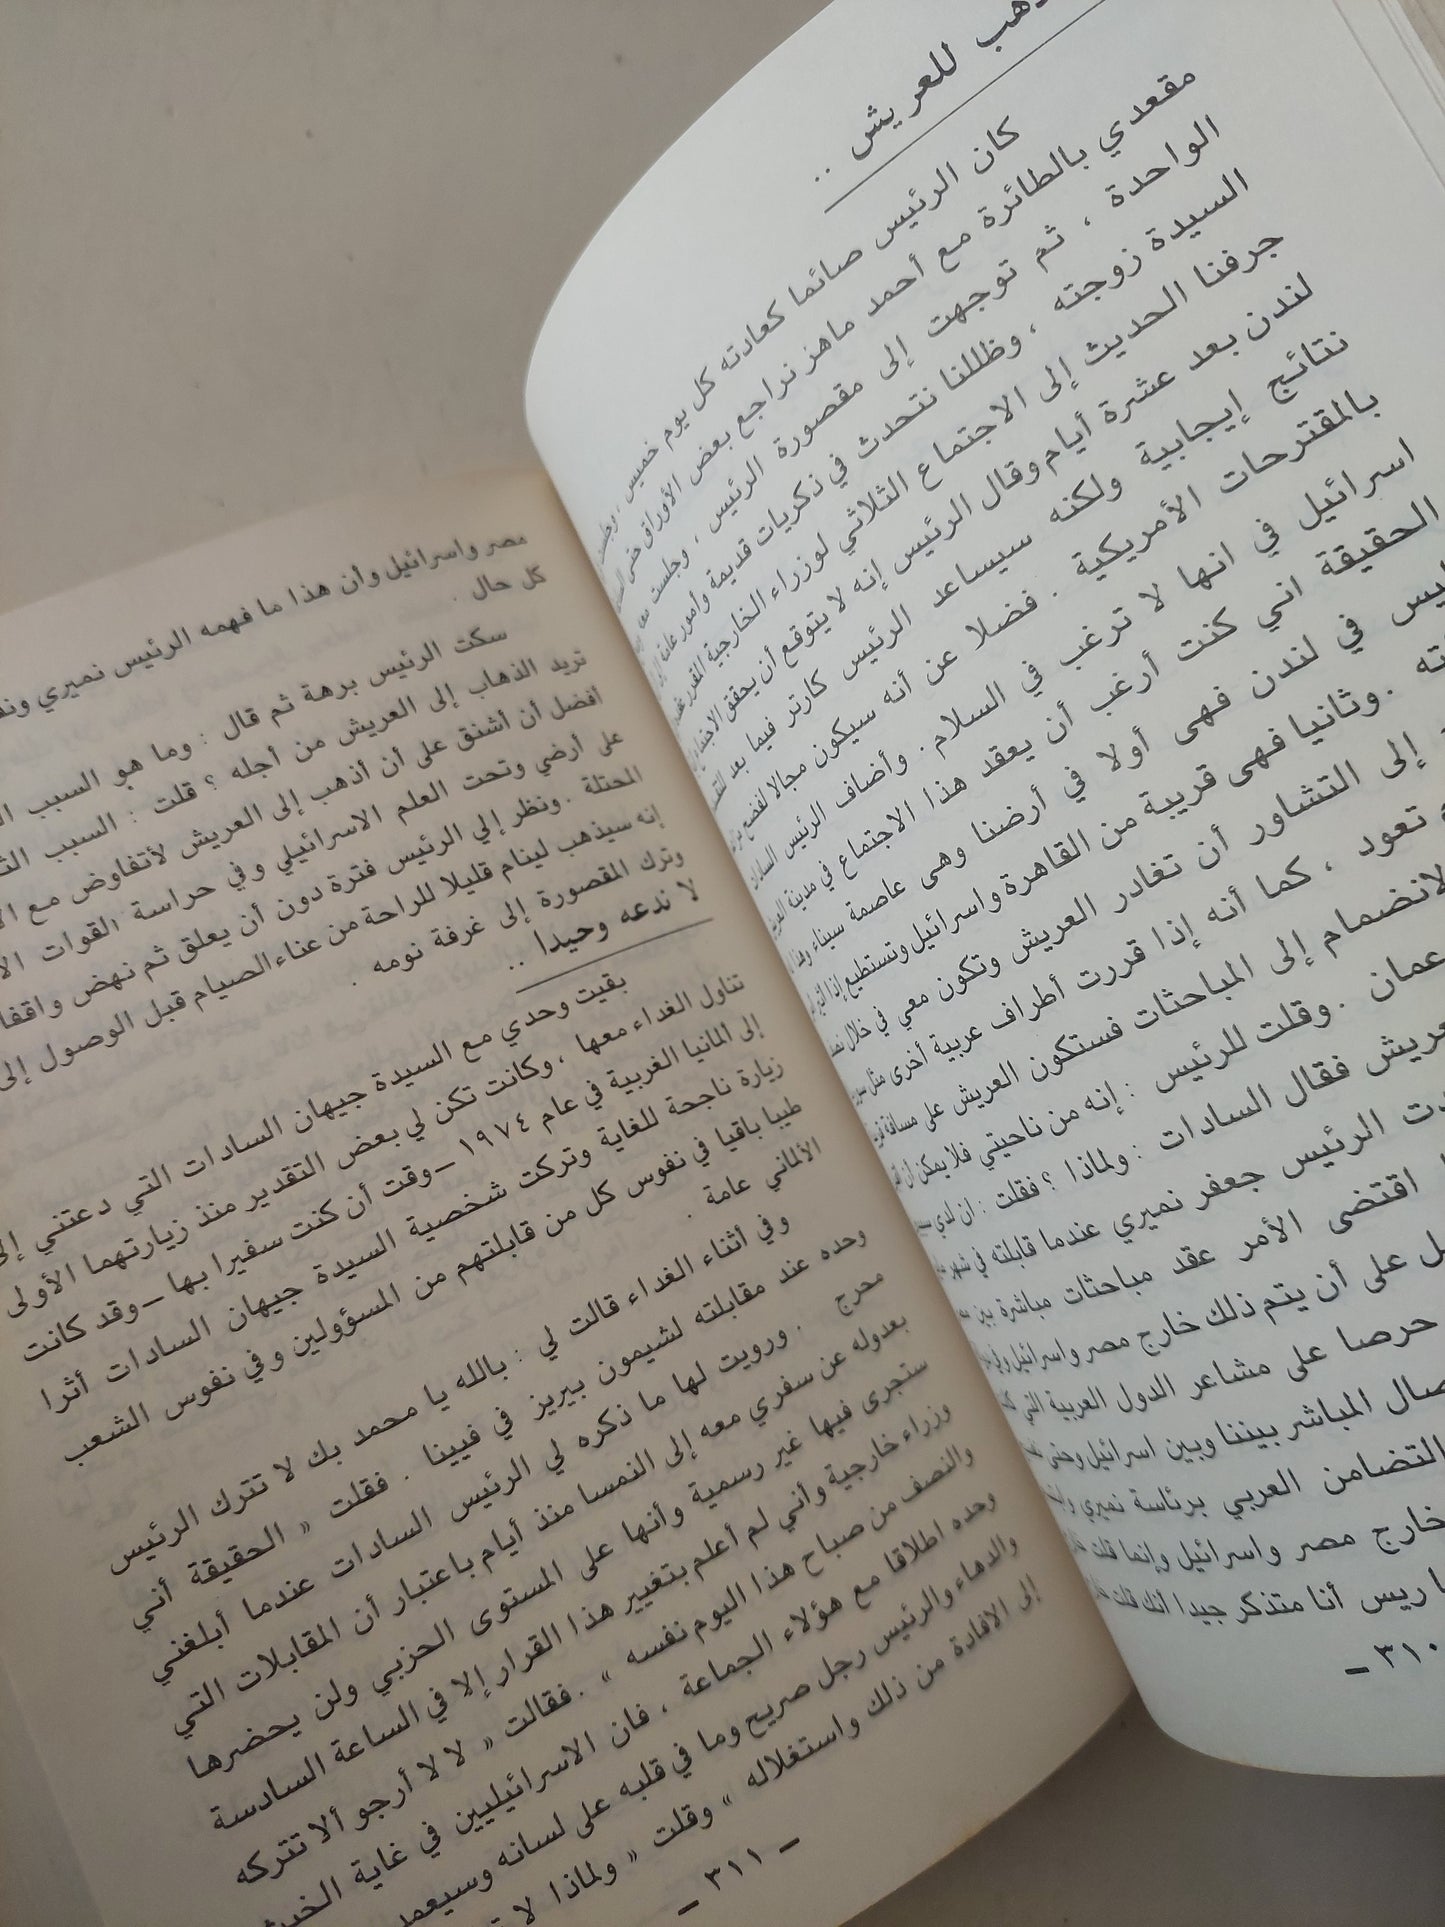 للعريش ..
كان الرئيس صائما كعادته كل يوم خميس ، وجلست
مقعدي بالطائرة مع أحمد ماهر نراجع بعض الأوراق حتى
الواحدة ، ثم توجهت إلى مقصورة الرئيس ، وجلست معه
السيدة زوجته ، وظللنا نتحدث في ذكريات قديمة وأمور عامة
جرفنا الحديث إلى الاجتماع الثلاثي لوزراء الخارجية المقرر
لندن بعد عشرة أيام وقال الرئيس إنه لا يتوقع أن يحقق الاجتماع
نتائج إيجابية ولكنه سيساعد الرئيس كارتر فيما بعد
بالمقترحات الأمريكية . فضلا عن أنه سيكون مجالا لفضح
اسرائيل في انها لا ترغب في السلام . وأضاف الرئيس السادات
الحقيقة اني كنت أرغب أن يعقد هذا الاجتماع في مدينة العريش
وليس في لندن فهى أولا في أرضنا وهى عاصمة سيناء
. وثانيا فهى قريبة من القاهرة واسرائيل وتستطيع إذا
إلى التشاور أن تغادر العريش وتكون معي في خلال
تعود ، كما أنه إذا قررت أطراف عربية أخرى مثل
الانضمام إلى المباحثات فستكون العريش على مسافة
عمان . وقلت للرئيس : إنه من ناحيتي فلا يمكن أن
العريش فقال السادات : ولماذا ؟ فقلت : ان لدي
الرئيس جعفر نميري عندما قابلته في شهر
اقتضى الأمر عقد مباحثات مباشرة بين
على أن يتم ذلك خارج مصر واسرائيل
حرصا على مشاعر الدول العربية التي
الاتصال المباشر بيننا وبين اسرائيل وحتى
التضامن العربي برئاسة نميري
خارج مصر واسرائيل وإنما قلت
يا ريس أنا متذكر جيدا أنك قلت
٣١٠ ـ
مصر واسرائيل وأن هذا ما فهمه الرئيس نميري
كل حال .
سكت الرئيس برهة ثم قال : وما هو السبب
تريد الذهاب إلى العريش من أجله ؟ قلت : السبب
أفضل أن أشنق على أن أذهب إلى العريش لأتفاوض مع
على أرضي وتحت العلم الاسرائيلي وفي حراسة القوات
المحتلة . ونظر إلي الرئيس فترة دون أن يعلق ثم نهض واقفا
إنه سيذهب لينام قليلا للراحة من عناء الصيام قبل الوصول إلى
وترك المقصورة إلى غرفة نومه .
لا ندعه وحيدا ..
بقيت وحدي مع السيدة جيهان السادات التي دعتني إلى
تناول الغداء معها ، وكانت تكن لي بعض التقدير منذ زيارتهما الأولى
إلى المانيا الغربية في عام ١٩٧٤ ــ وقت أن كنت سفيرا بها ــ وقد كانت
زيارة ناجحة للغاية وتركت شخصية السيدة جيهان السادات أثرا
طيبا باقيا في نفوس كل من قابلتهم من المسؤولين وفي نفوس الشعب
الألماني عامة .
وفي أثناء الغداء قالت لي : بالله يا محمد بك لا تترك الرئيس
وحده عند مقابلته لشيمون بيريز في فيينا . فقلت « الحقيقة أني
محرج . ورويت لها ما ذكره لي الرئيس السادات عندما أبلغني
بعدوله عن سفري معه إلى النمسا منذ أيام باعتبار أن المقابلات التي
ستجرى فيها غير رسمية وأنها على المستوى الحزبي ولن يحضرها
وزراء خارجية وأني لم أعلم بتغيير هذا القرار إلا في الساعة السادسة
والنصف من صباح هذا اليوم نفسه » . فقالت « لا لا أرجو ألا تتركه
وحده اطلاقا مع هؤلاء الجماعة ، فان الاسرائيليين في غاية الخبث
والدهاء والرئيس رجل صريح وما في قلبه على لسانه وسيعمد
إلى الافادة من ذلك واستغلاله » وقلت « ولماذا لا
ـ ٣١١ ـ